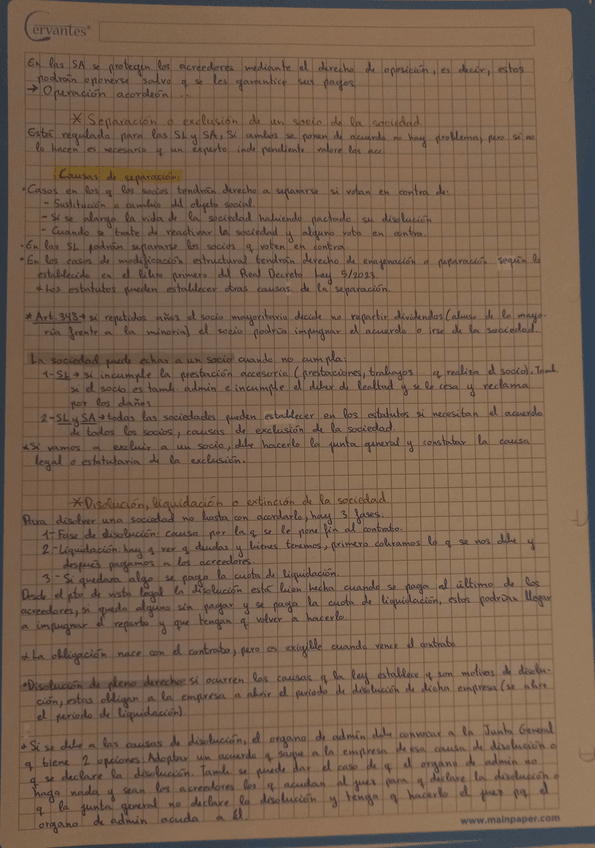 Cervantes
En las SA se protegen los acreedores mediante el derecho de oposición, es decir, estos
podrán oponerse salvo q se les garantice sus pagos
→ Operación acordeón...
* Separación o exclusión de un socio de la sociedad
Está regulado para las SL y SA, Si ambos se ponen de acuerdo no hay problema, pero si no
lo hacen es necesario q un experto independiente valore las acc
Causas de separación:
• Casos en los q los socios tendrán derecho a separarse si votan en contra de:
- Sustitución o cambio del objeto social.
- Si se alarga la vida de la sociedad habiendo pactado su disolución
- Cuando se trate de reactivar la sociedad y alguno vota en contra.
• En las SL podrán separarse los socios q voten en contra
• En los casos de modificación estructural tendrán derecho de enagenación o separación según lo
establecido en el libro primero del Real Decreto Ley 5/2023
* Los estatutos pueden establecer otras causas de la separación.
* Art. 348 → si repetidos años el socio mayoritario decide no repartir dividendos (abuso de la mayo-
ría frente a la minoría) el socio podría impugnar el acuerdo o irse de la sociedad.
La sociedad puede echar a un socio cuando no cumpla:
1- SL → si incumple la prestación accesoria (prestaciones, trabajos q realiza el socio). Tamb
si el socio es tamb admin e incumple el deber de lealtad y se le cesa y reclama
por los daños
2- SL y SA → todas las sociedades pueden establecer en los estatutos si necesitan el acuerdo
de todos los socios, causas de exclusión de la sociedad.
* Si vamos a excluir a un socio, debe hacerlo la junta general y constatar la causa
legal o estatutaria de la exclusión.
* Disolución, liquidación o extinción de la sociedad
Para disolver una sociedad no basta con acordarlo, hay 3 fases.
1- Fase de disolución: causa por la q se le pone fin al contrato.
2- Liquidación: hay q ver q deudas y bienes tenemos, primero cobramos lo q se nos debe y
después pagamos a los acreedores.
3- Si quedara algo se paga la cuota de liquidación.
Desde el pto de vista legal la disolución está bien hecha cuando se paga al último de los
acreedores, si queda alguno sin pagar y se paga la cuota de liquidación, estos podrían llegar
a impugnar el reparto y que tengan q volver a hacerlo.
* La obligación nace con el contrato, pero es exigible cuando vence el contrato
* Disolución de pleno derecho: si ocurren las causas q la ley establece q son motivos de disolu-
ción, estas obligan a la empresa a abrir el periodo de disolución de dicha empresa (se abre
el periodo de liquidación)
* Si se debe a las causas de disolución, el organo de admin debe convocar a la Junta General
q tiene 2 opciones: Adoptar un acuerdo q saque a la empresa de esa causa de disolución o
q se declare la disolución. Tamb se puede dar el caso de q el organo de admin no
haga nada y sean los acreedores los q acudan al juez para q declare la disolución o
q la junta general no declare la disolución y tenga q hacerlo el juez pq el
organo de admin acuda a él
www.mainpaper.com